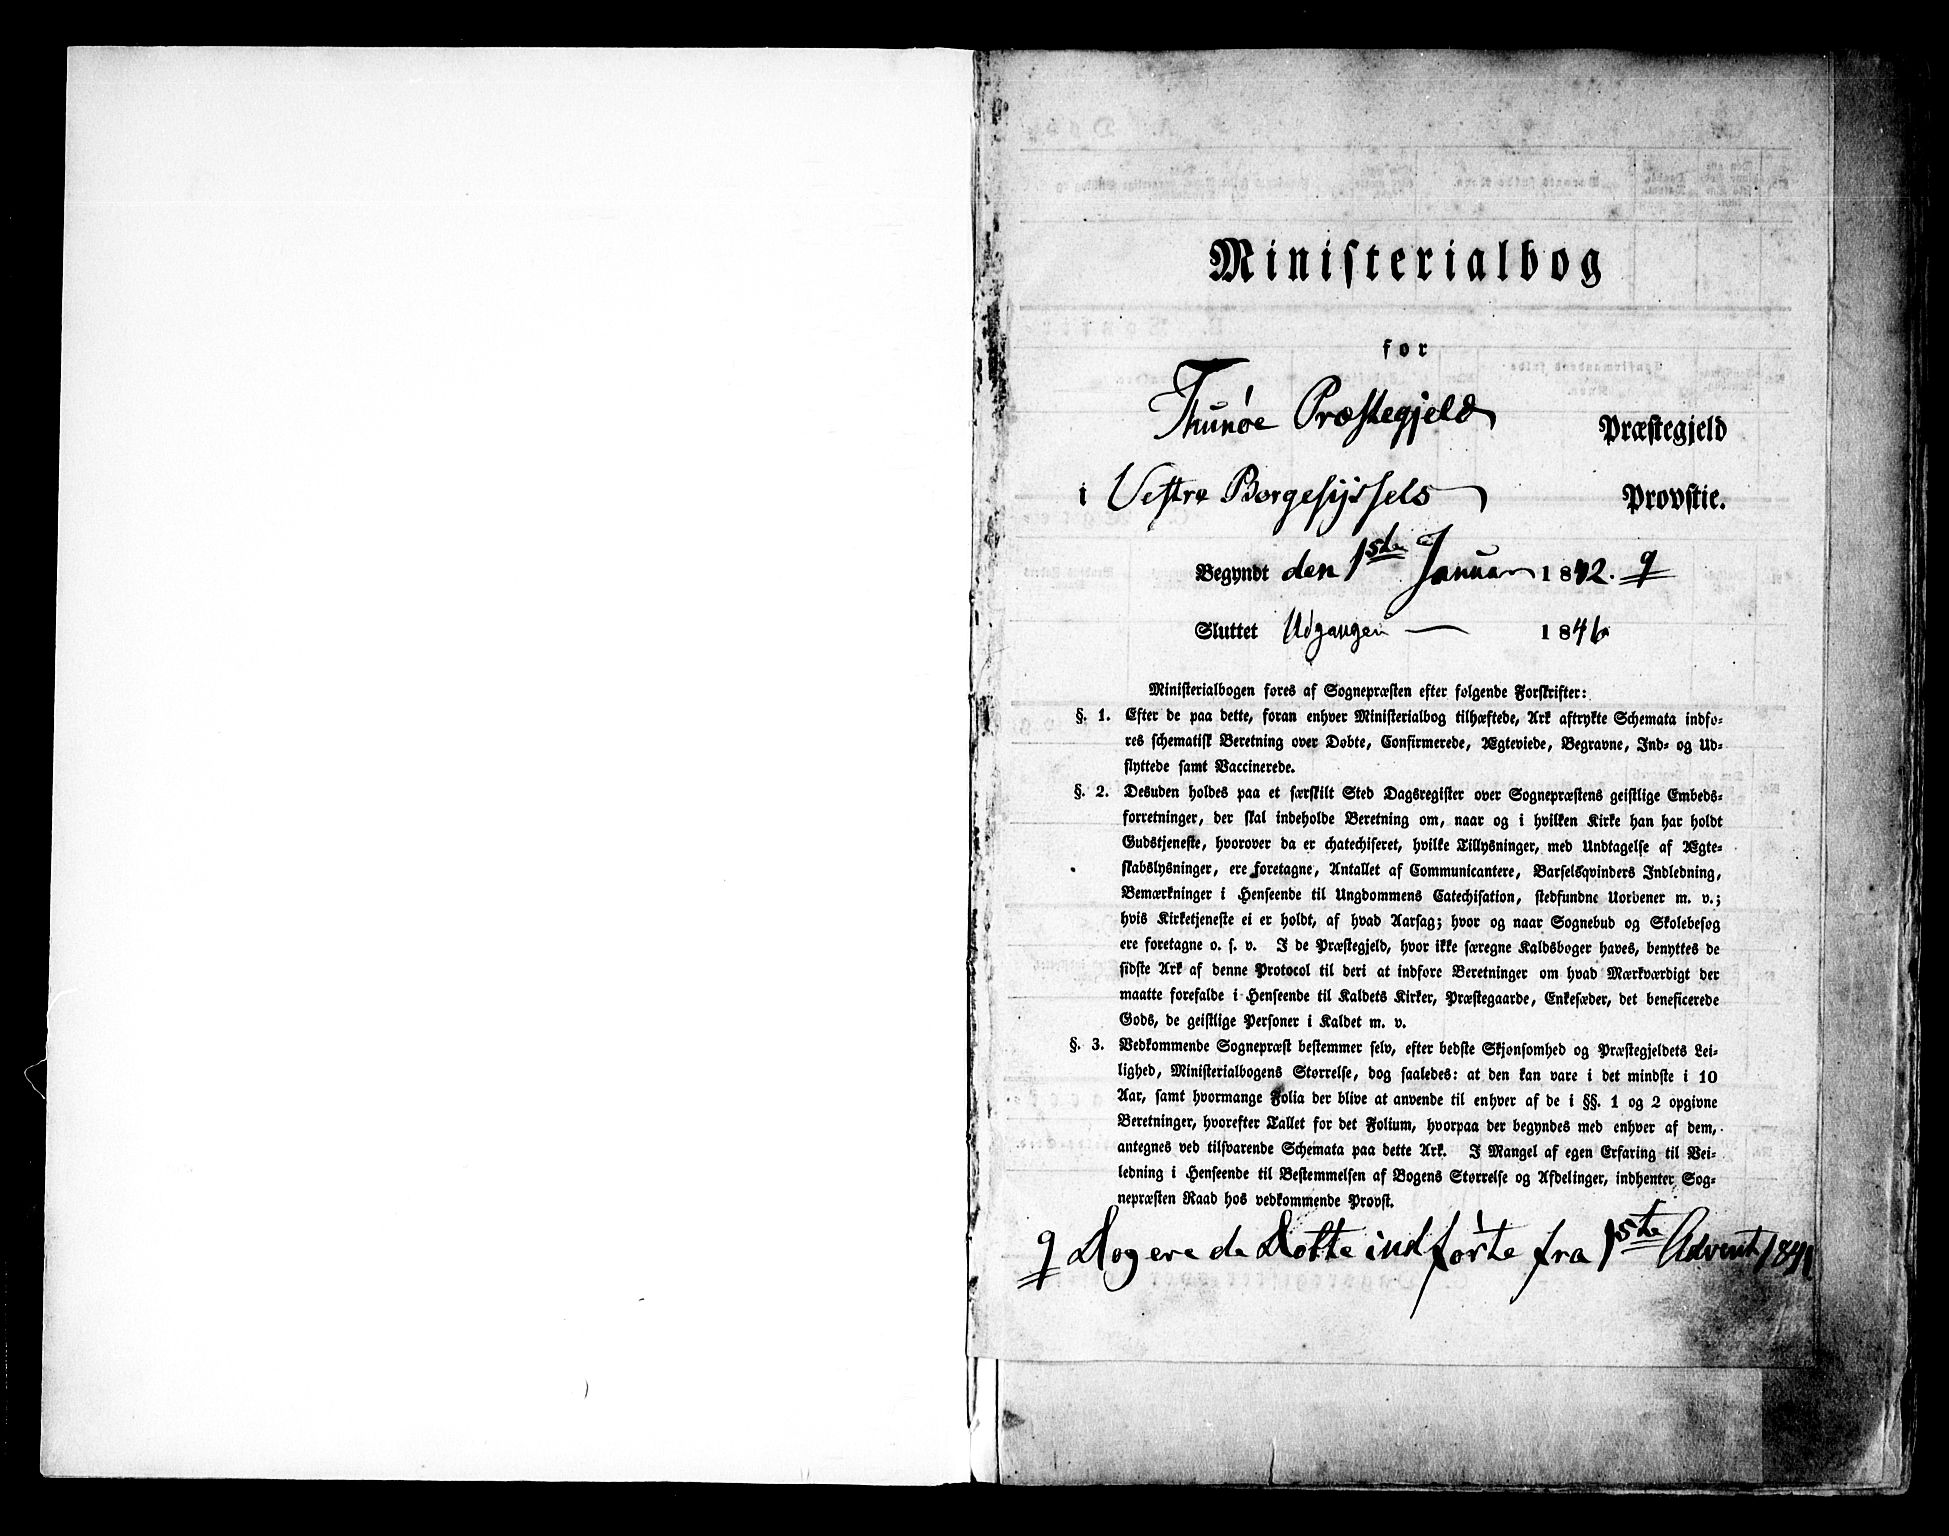 Ministerialbog
for
Thunøe Præstegjeld Præstegjeld
i Vestre Borgesyssels Provstie.
Begyndt den 1ste Januar 1842. q
Sluttet Udgangen — 1846
Ministerialbogen føres af Sognepræsten efter følgende Forskrifter:
§. 1. Efter de paa dette, foran enhver Ministerialbog tilhæftede, Ark aftrykte Schemata indfø-
res schematisk Beretning over Døbte, Confirmerede, Ægteviede, Begravne, Ind- og Ud-
flyttede samt Vaccinerede.
§. 2. Desuden holdes paa et særskilt Sted Dagsregister over Sognepræstens geistlige Embeds-
forretninger, der skal indeholde Beretning om, naar og i hvilken Kirke han har holdt
Gudstjeneste, hvorover da er chatechiseret, hvilke Tillysninger, med Undtagelse af Ægte-
skabslysninger, ere foretagne, Antallet af Communicantere, Barselsqvinders Indledning,
Bemærkninger i Henseende til Ungdommens Catechisation, stedfundne Uordener m. v.;
hvis Kirketjeneste ei er holdt, af hvad Aarsag; hvor og naar Sognebud og Skolebesøg
ere foretagne o. s. v. I de Præstegjeld, hvor ikke særegne Kaldsbøger haves, benyttes de
sidste Ark af denne Protocol til deri at indføre Beretninger om hvad Mærkværdigt der
maatte forefalde i Henseende til Kaldets Kirker, Præstegaarde, Enkesæder, det beneficerede
Gods, de geistlige Personer i Kaldet m. v.
§. 3. Vedkommende Sognepræst bestemmer selv, efter bedste Skjønsomhed og Præstegjeldets Lei-
lighed, Ministerialbogens Størrelse, dog saaledes: at den kan vare i det mindste i 10
Aar, samt hvormange Folia der blive at anvende til enhver af de i §§. 1 og 2 opgivne
Beretninger, hvorefter Tallet for det Folium, hvorpaa der begyndes med enhver af dem,
antegnes ved tilsvarende Schemata paa dette Ark. I Mangel af egen Erfaring til Vei-
ledning i Henseende til Bestemmelsen af Bogens Størrelse og Afdelinger, indhenter Sog-
nepræsten Raad hos vedkommende Provst.
q Dog ere de Døbte indførte fra 1ste Advent 1841